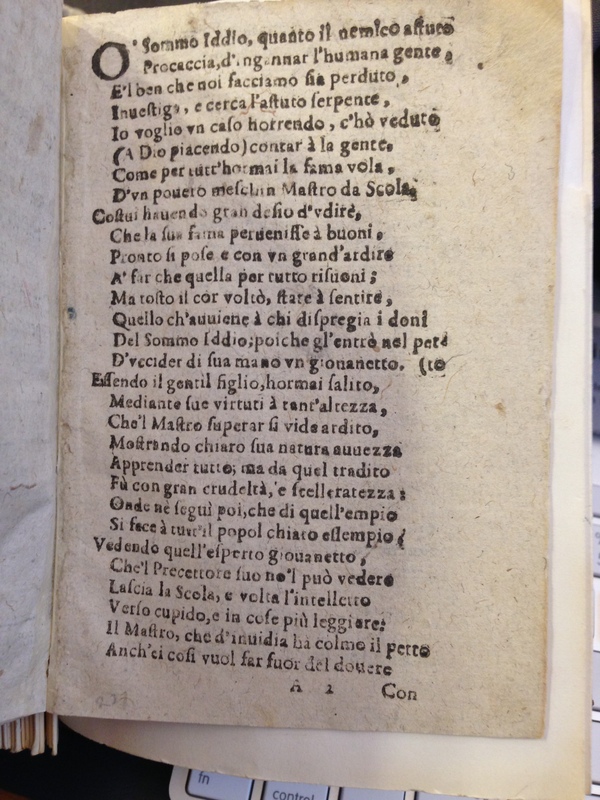 O' Sommo Iddio, quanto il nemico astuto
Procaccia, d'ingannar l'humana gente,
E'l ben che noi facciamo sia perduto,
Inuestiga, e cerca l'astuto serpente,
Io voglio vn caso horrendo, c'hò veduto
(A Dio piacendo) contar à la gente,
Come per tutt'hormai la fama vola,
D'vn pouero meschin Mastro da Scola,
Costui hauendo gran desio d'vdire,
Che la sua fama peruenisse à buoni,
Pronto si pose e con vn grand'ardire
A' far che quella per tutto risuoni;
Ma tosto il cor voltò, state à sentire,
Quello ch'auuiene à chi dispregia i doni
Del Sommo Iddio;poiche gl'entrò nel pet=
D'vccider di sua mano vn giouanetto. (to
Essendo il gentil figlio,hormai salito,
Mediante sue virtuti à tant'altezza,
Che'l Mastro superar si vide ardito,
Mostrando chiaro sua natura auuezza
Apprender tutto; ma da quel tradito
Fù con gran crudeltà, e scelleratezza:
Onde nè seguì poi,che di quell'empio
Si fece à tutt'il popol chiaro essempio.
Vedendo quell'esperto giouanetto,
Che'l Precettore suo no'l può vedere
Lascia la Scola, e volta l'intelletto
Verso cupido,e in cose più leggiere:
Il Mastro, che d'inuidia hà colmo il petto
Anch'ei così vuol far fuor del douere
A 2 Con
237
fn
control